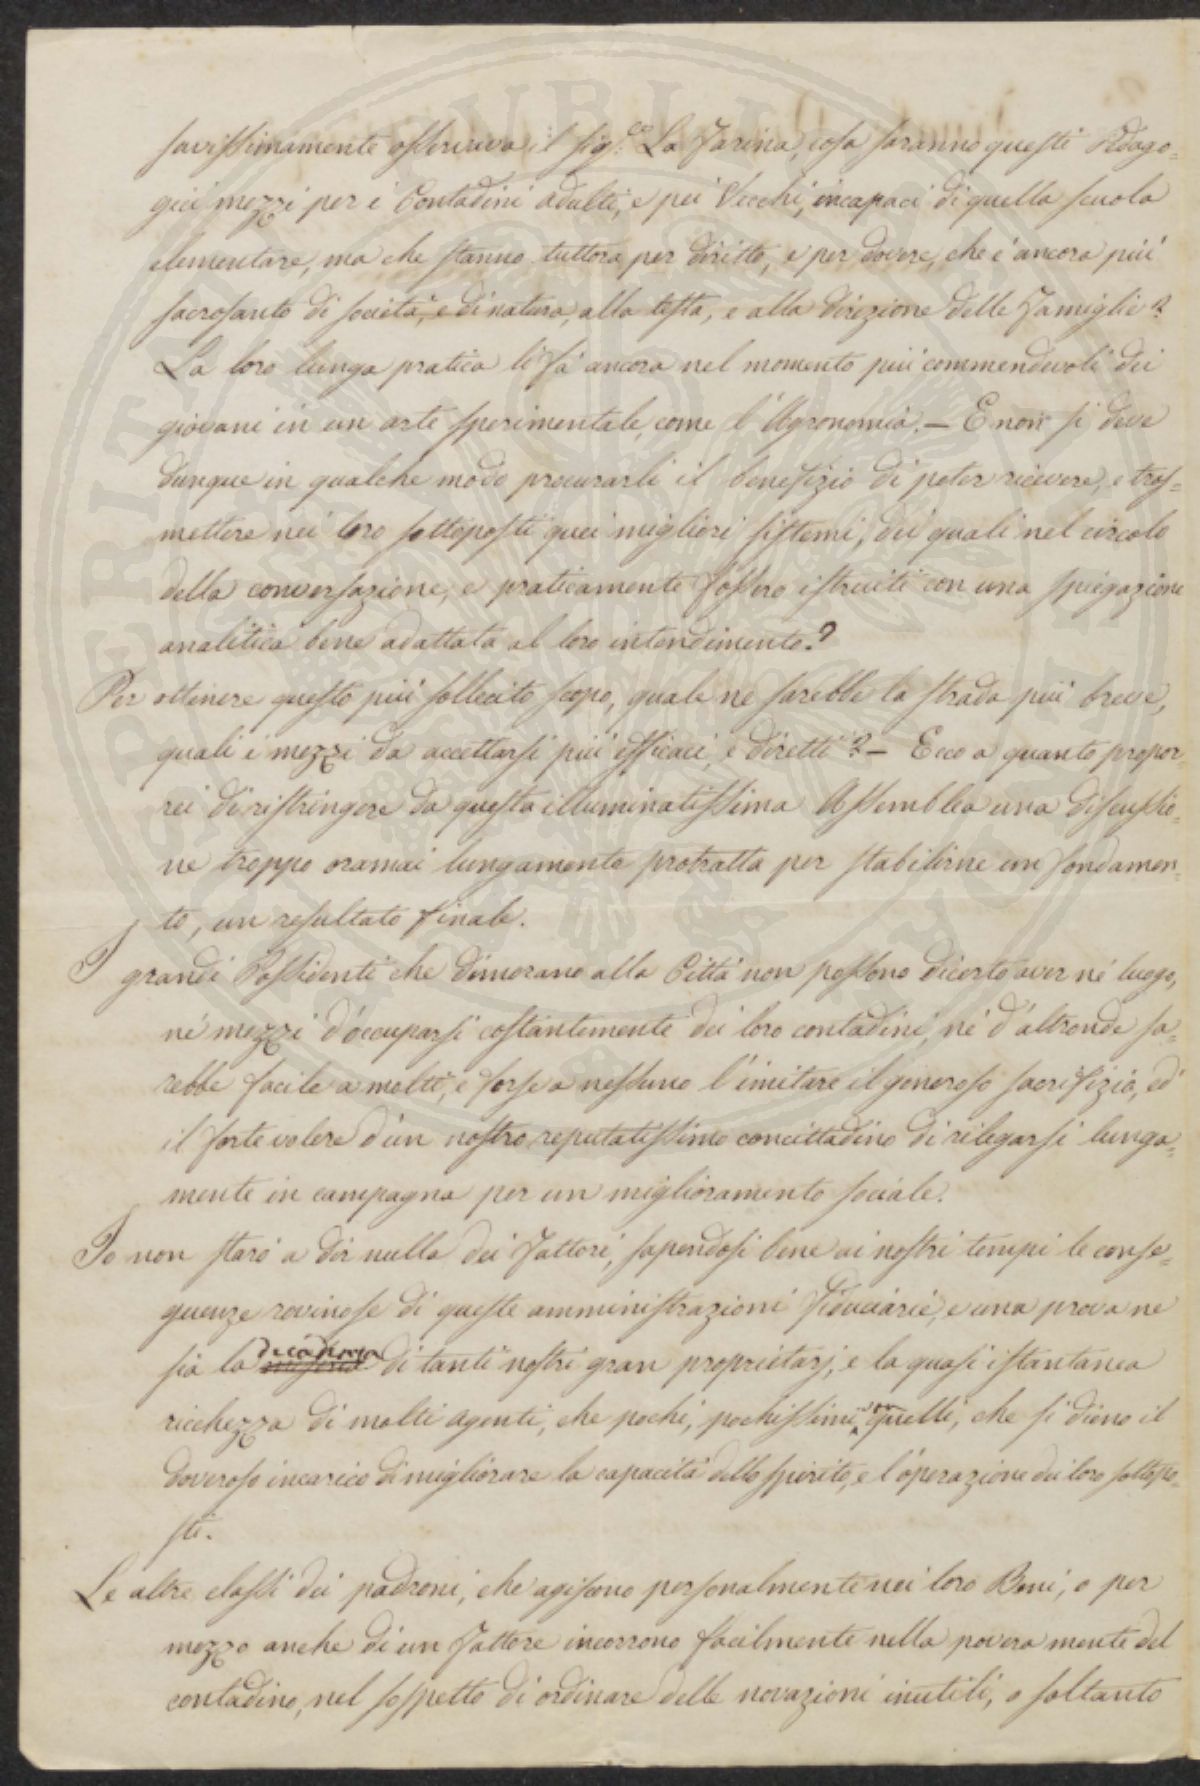 savissimamente osservava il sig.co La Farina, cosa saranno questi Pedago=
gici mezzi per i Contadini adulti, e pei Vecchi, incapaci di quella scuola
elementare, ma che stanno tuttora per diritto, e per dovere, che è ancora più
sacrosanto di società, e di natura, alla testa, e alla direzione delle Famiglie?
La loro lunga pratica li fà ancora nel momento più commendevoli dei
giovani in un arte sperimentale, come l'Agronomia. — E non si deve
dunque in qualche modo procurarli il benefizio di poter ricevere, e tras=
mettere nei loro sottoposti quei migliori sistemi, dei quali nel circolo
della conversazione, e praticamente fossero istruiti con una spiegazione
analitica bene adattata al loro intendimento?
Per ottenere questo più sollecito scopo, quale ne sarebbe la strada più breve,
quali i mezzi da accettarsi più efficaci, e diretti? — Ecco a quanto propor=
rei di ristringere da questa illuminatissima Assemblea una discussio=
ne troppo oramai lungamente protratta per stabilirne un fondamen=
to, un resultato finale.
I grandi Possidenti che dimorano alla Città non possono dicerto aver né luogo,
né mezzi d'occuparsi costantemente dei loro contadini, né d'altronde sa=
rebbe facile a molti, e forse a nessuno l'imitare il generoso sacrifizio, ed
il forte volere d'un nostro reputatissimo concittadino di rilegarsi lunga=
mente in campagna per un miglioramento sociale.
Io non starò a dir nulla dei Fattori, sapendosi bene ai nostri tempi le conse=
guenze rovinose di queste amministrazioni fiduciarie, e una prova ne
sia la decadenza di tanti nostri gran proprietarj, e la quasi istantanea
ricchezza di molti agenti, che pochi, pochissimi son quelli, che si dieno il
doveroso incarico di migliorare la capacità dello spirito, e l'operazione dei loro sottopo=
sti.
Le altre classi dei padroni, che agiscono personalmente nei loro Beni, o per
mezzo anche di un Fattore incorrono facilmente nella povera mente del
contadino, nel sospetto di ordinare delle novazioni inutili, o soltanto